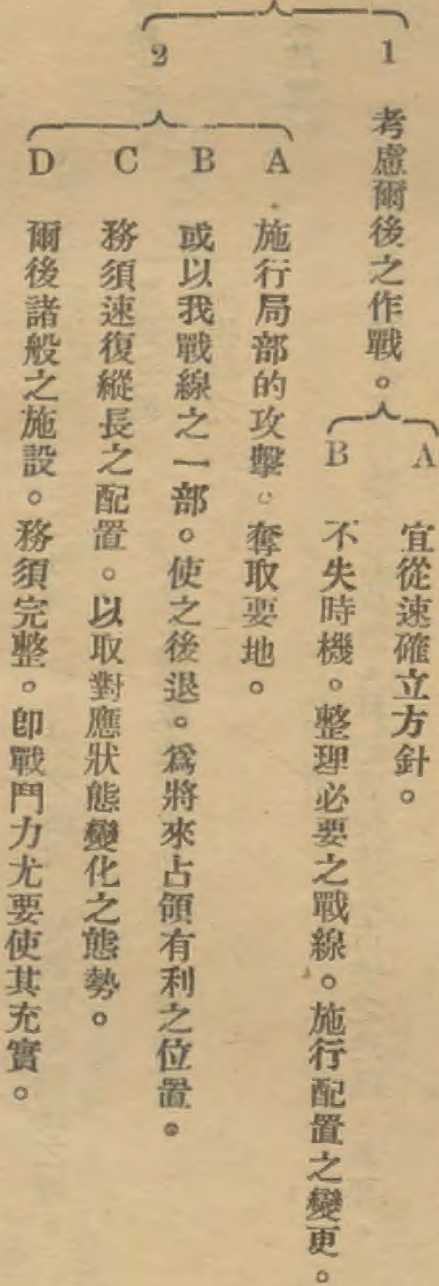 1 考慮爾後之作戰。
A 宜從速確立方針。
B 不失時機。整理必要之戰線。施行配置之變更。
2
A 施行局部的攻擊。奪取要地。
B 或以我戰線之一部。使之後退。爲將來占領有利之位置。
C 務須速復縱長之配置。以取對應狀態變化之態勢。
D 爾後諸般之施設。務須完整。卽戰鬥力尤要使其充實。